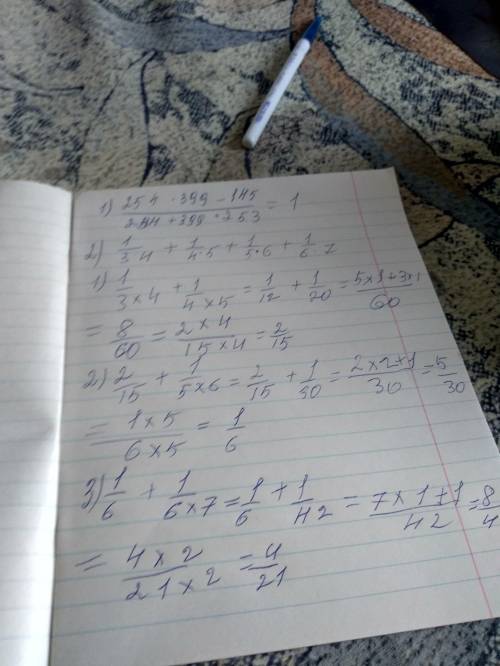 1) (254 · 399 - 145)/(244 + 399 · 253) = 1
2) 1/(3·4) + 1/(4·5) + 1/(5·6) + 1/(6·7)
1) 1/(3×4) + 1/(4×5) = 1/12 + 1/20 = (5×1+3×1)/60
= 8/60 = (2×4)/(15×4) = 2/15
2) 2/15 + 1/(5×6) = 2/15 + 1/30 = (2×2+1)/30 = 5/30
= (1×5)/(6×5) = 1/6
3) 1/6 + 1/(6×7) = 1/6 + 1/42 = (7×1+1)/42 = 8/4
= (4×2)/(21×2) = 4/21